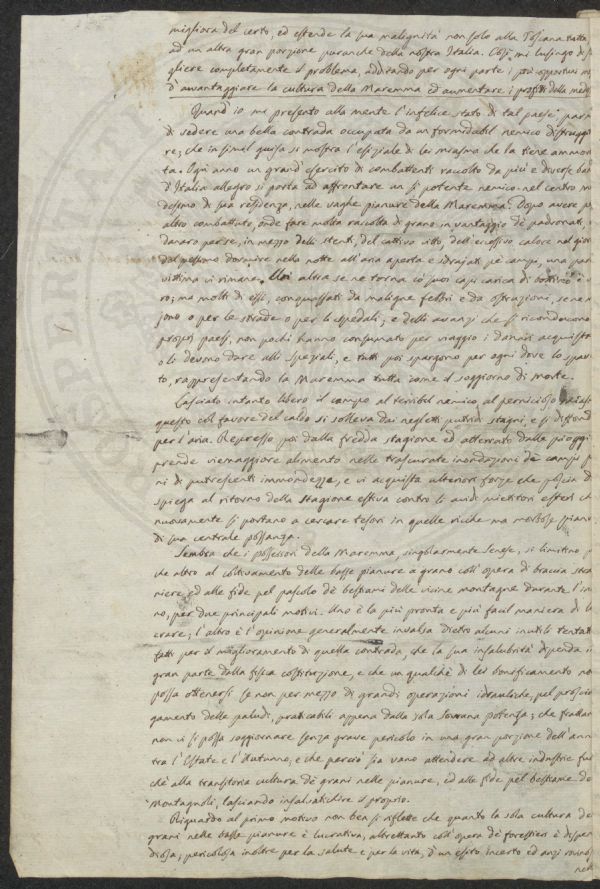 migliora del certo, ed estende la sua malignità non solo alla Toscana tutta
ad un altra gran porzione puranche della nostra Italia. Così mi lusingo di
gliere completamente il problema, additando per ogni parte i più opportuni
d'avvantaggiare la cultura della Maremma ed aumentare i profitti della
Quand' io mi presento alla mente l'infelice stato di tal paese,
di vedere una bella contrada occupata da un formidabil nemico distruggi
re; che in simil guisa si mostra l'esiziale di lei miasma che la tiene
ta. Ogni anno un grand' esercito di combattenti raccolto da più e diverse
d'Italia allegro si porta ad affrontare un sì potente nemico nel centro
desimo di sua residenza, nelle vaghe pianure della Maremma. Dopo avere
altro combattuto, onde fare molta raccolta di grano in vantaggio de padronati,
danaro per se, in mezzo delli stenti, del cattivo vitto, dell'eccessivo calore nel
dal pessimo dormire nella notte all'aria aperta e sdrajati pe campi, una
vittima vi rimane. altra se ne torna co' suoi capi carica di bottino
ro; ma molti di essi, conquassati da maligne febbri e da ostruzioni, se ne
jono o per le strade o per li spedali; e delli avanzi che si riconducono
proprj paesi, non pochi hanno consumato per viaggio i danari
o li devono dare alli speziali, e tutti poi spargono per ogni dove lo
to, rappresentando la Maremma tutta come il soggiorno di morte.
Lasciato intanto libero il campo al terribil nemico, al pernicioso
questo col favore del caldo si solleva dai negletti putridi stagni, e si
per l'aria. Represso poi dalla fredda stagione ed atterrato dalla
prende viemaggiore alimento nelle trascurate inondazioni de campi
ni di putrescenti immondezze, e vi acquista ulteriori forze che poscia
spiega al ritorno della stagione estiva contro li avidi mietitori esteri
nuovamente si portano a cercare tesori in quelle ricche ma morbose
di sua centrale possanza.
Sembra che i possessori della Maremma, singolarmente Senese, si limitino
che altro al coltivamento delle basse pianure a grano coll' opera di braccia
niere, ed alle fide pel pascolo de bestiami delle vicine montagne durante l'
no, per due principali motivi. Uno è la più pronta e più facil maniera di
crare; l'altro è l'opinione generalmente invalsa dietro alcuni inutili
fatti per il miglioramento di quella contrada, che la sua insalubrità dipenda
gran parte dalla fisica costituzione, e che un qualche di lei bonificamento
possa ottenersi se non per mezzo di grandi operazioni idrauliche, pel
gamento delle paludi, praticabili appena dalla sola Sovrana potenza; che
non vi si possa soggiornare senza grave pericolo in una gran porzione dell'
tra l'Estate e l'Autunno, e che perciò sia vano attendere ad altre industrie
chè alla transitoria cultura de grani nelle pianure, ed alle fide pel bestiame
Montagnoli, lasciando insalvatichire il proprio.
Riguardo al primo motivo non ben si riflette che quanto la sola cultura
grani nelle basse pianure è lucrativa, altrettanto coll' opera de forestieri è
diosa; pericolosa inoltre per la salute e per la vita; d'un esito incerto ed anzi